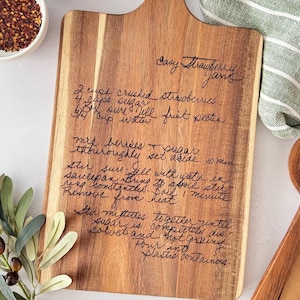 Easy Strawberry
Jam
2 cups crushed strawberries
4 cups sugar
sure jell fruit pectin
3/4 cup water
mix berries & sugar
thoroughly set aside 10 min
Stir sure jell with water in
saucepan Bring to boil stir
ing constantly 1 minute
Remove from heat
Stir mixtures together until
sugar is completely dis
solved and not grainy
Pour into
Plastic containers